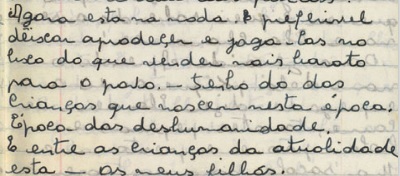 Agora esta na moda. É preferivel
deixar apodeçer e joga-las no
lixo do que vender mais barato
para o povo. — Tenho dó das
crianças que nascem nesta época.
Época das deshumanidade.
E entre as crianças da atualidade
esta — os meus filhos.